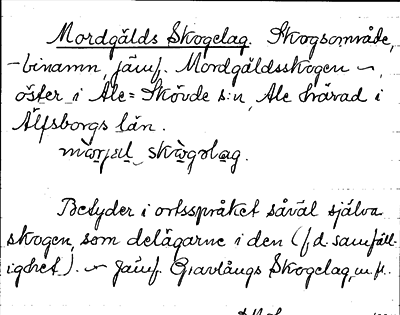 Mordgälds Skogelag. Skogsområde,
-binamn, jämf. Mordgäldsskogen ~,
öster i Ale=Skövde s:n, Ale härad i
Älfsborgs län.
mòrjæl skògəlag.
Betyder i ortsspråket såväl själva
skogen, som delägarne i den (f.d. samfäll-
ighet). ~ Jämf. Gravlångs Skogelag, m.fl.